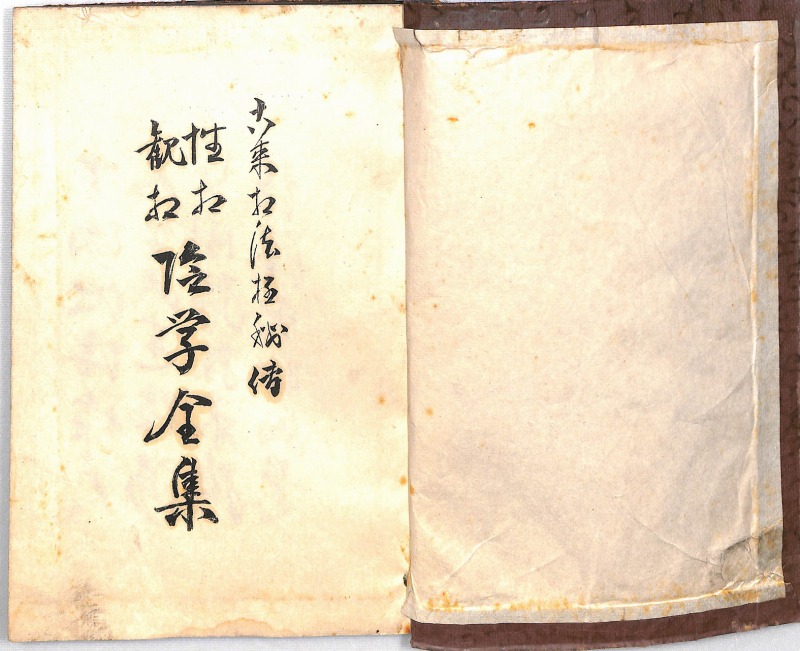 大乗相法極秘傳
性相
観相
陰学全集